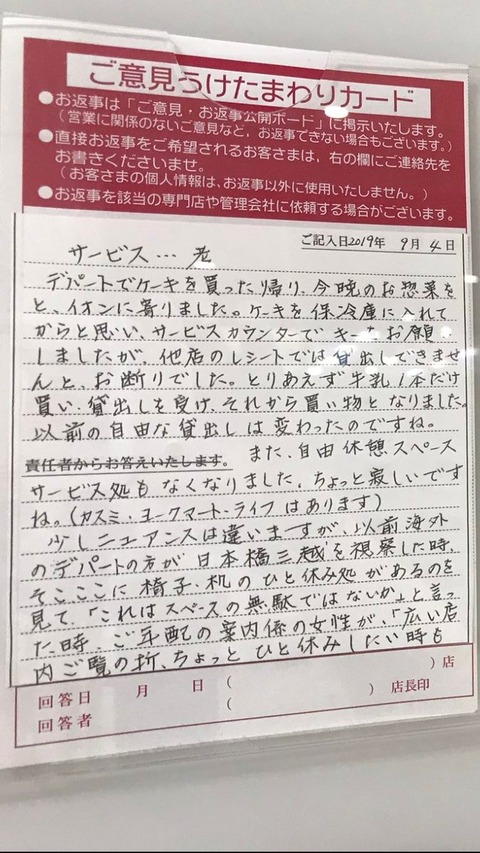 ご意見うけたまわりカード
●お返事は「ご意見・お返事公開ボード」に掲示いたします。
(営業に関係のないご意見など、お返事できない場合もございます。)
●直接お返事をご希望されるお客さまは、右の欄にご連絡先を
お書きくださいませ。
(お客さまの個人情報は、お返事以外に使用いたしません。)
●お返事を該当の専門店や管理会社に依頼する場合がございます。
ご記入日2019年 9月 4日
サービス… 老
デパートでケーキを買った帰り、今晩のお惣菜を
と、イオンに寄りました。ケーキを保冷庫に入れて
からと思い、サービスカウンターでキーをお願い
しましたが、他店のレシートでは貸出しできませ
んと、お断りでした。とりあえず牛乳1本だけ
買い、貸出しを受け、それから買い物となりました。
以前の自由な貸出しは変わったのですね。
責任者からお答えいたします。 また、自由休憩スペース
サービス処もなくなりました。ちょっと寂しいです
ね。(カスミ・ヨークマート・ライフはあります)
少しニュアンスは違いますが、以前海外
のデパートの方が日本橋三越を視察した時、
そこここに椅子・机のひと休み処があるのを
見て、「これはスペースの無駄ではないか」と言っ
た時、ご年配の案内係の女性が、「広い店
内ご覧の折、ちょっとひと休みしたい時も
回答日 月 日 ( )店
回答者 ( ) 店長印